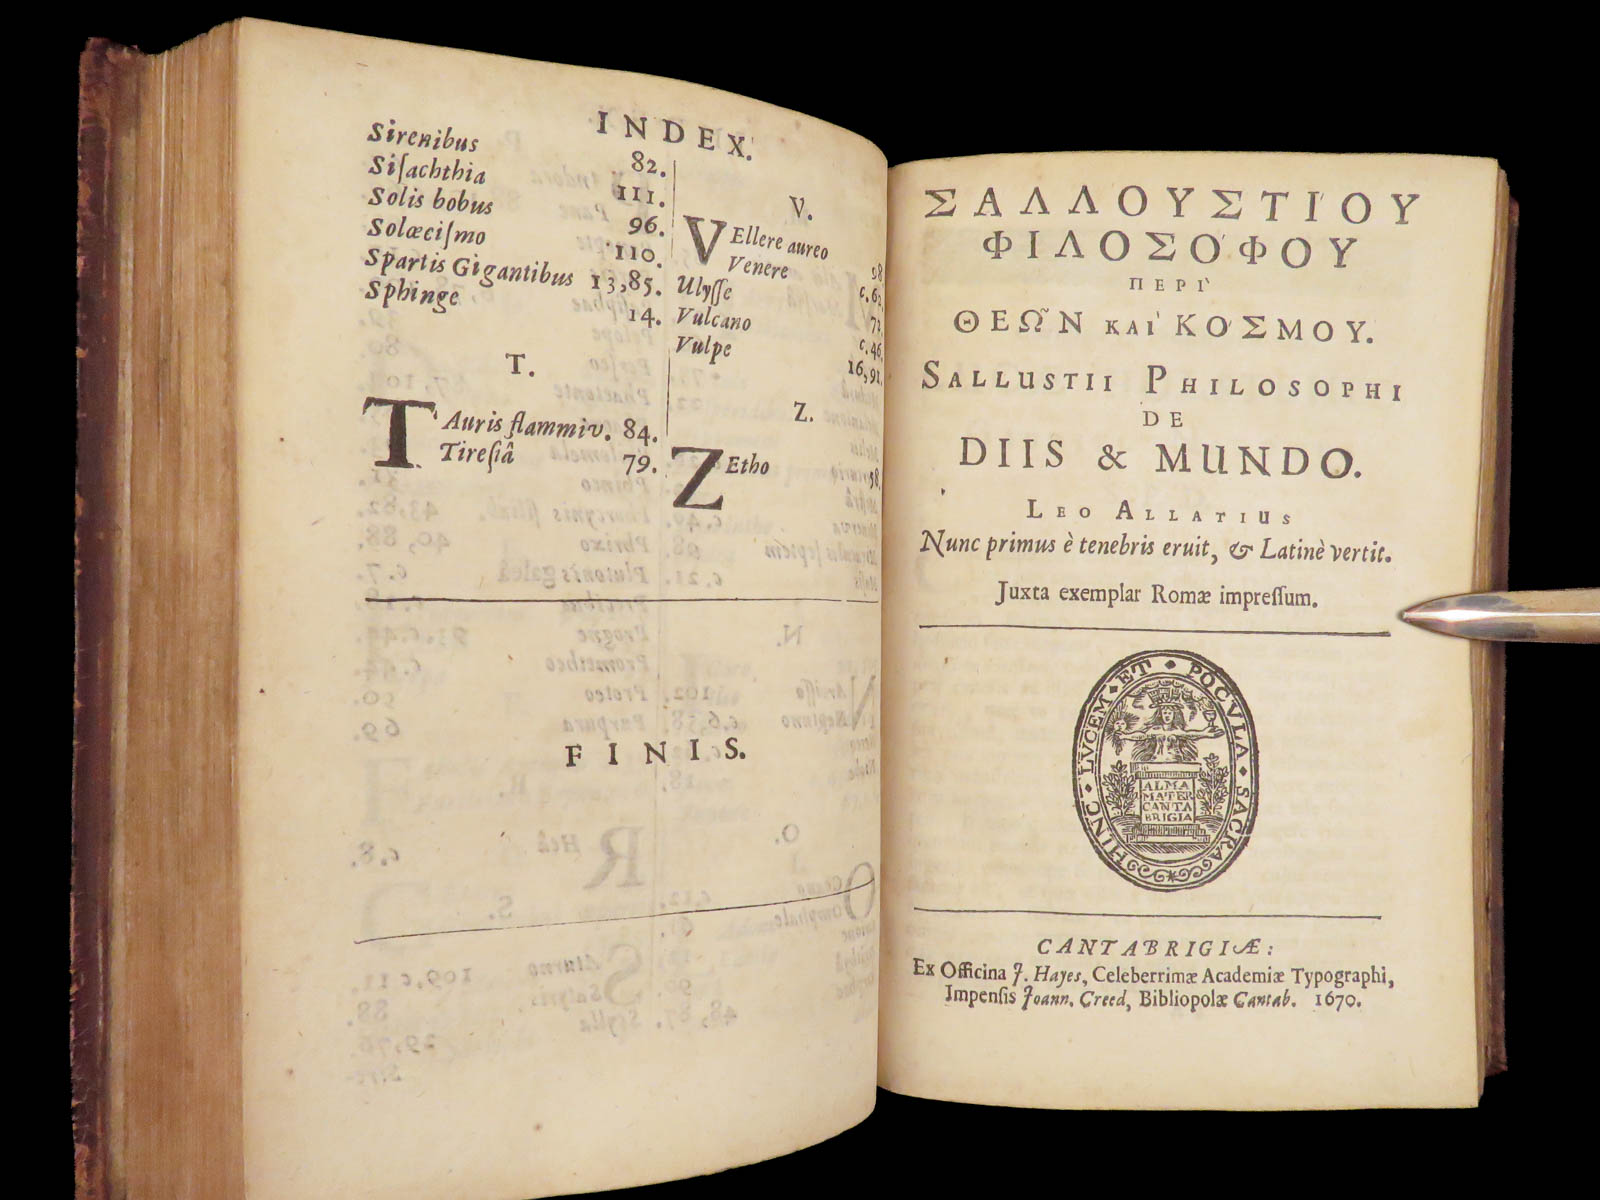 INDEX.
Sirenibus 82.
Siſachthia 111.
Solis bobus 96.
Solœciſmo 110.
Spartis Gigantibus 13, 85.
Sphinge 14.
T.
TAuris flammiv. 84.
Tireſiâ 79.
V.
VEllere aureo
Venere c. 62
Ulyſſe 72
Vulcano c. 46.
Vulpe 16, 91.
Z.
ZEtho 58.
FINIS.
ΣΑΛΛΟΥΣΤΙΌΥ
ΦΙΛΟΣΌΦΟΥ
ΠΕΡῚ
ΘΕΩ͂Ν ΚΑῚ ΚΌΣΜΟΥ.
SALLUSTII PHILOSOPHI
DE
DIIS & MUNDO.
LEO ALLATIUS
Nunc primus è tenebris eruit, & Latinè vertit.
Juxta exemplar Romæ impreſſum.
HINC · LVCEM · ET · POCVLA · SACRA
ALMA
MATER
CANTA
BRIGIA
CANTABRIGIÆ:
Ex Officina J. Hayes, Celeberrimæ Academiæ Typographi,
Impenſis Joann. Creed, Bibliopolæ Cantab. 1670.